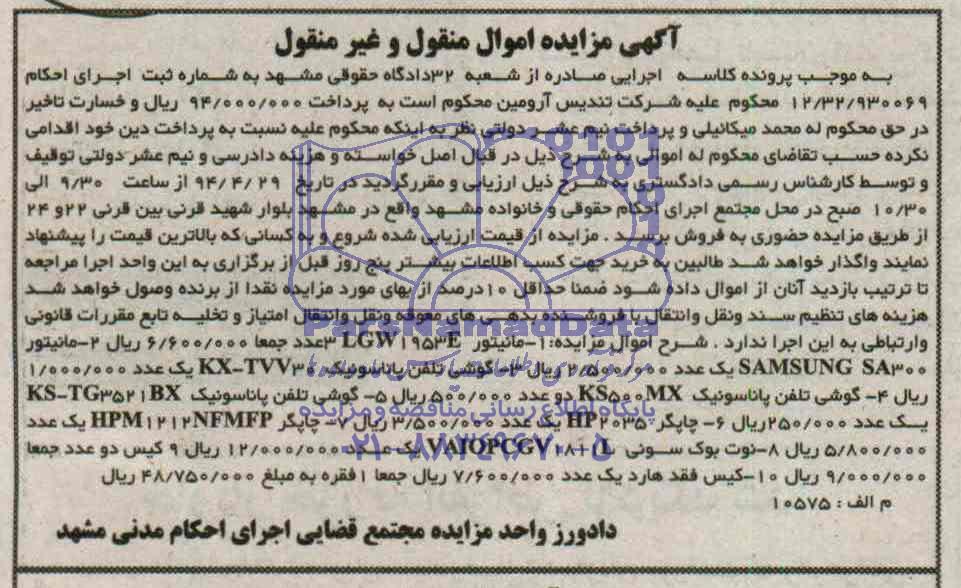 آگهی مزایده اموال منقول و غیر منقول
به موجب پرونده کلاسه اجرایی صادره از شعبه ۳۲دادگاه حقوقی مشهد به شماره ثبت اجرای احکام
۱۲/۳۲/۹۳۰۰۶۹ محکوم علیه شرکت تندیس آرومین محکوم است به پرداخت ۹۴/۰۰۰/۰۰۰ ریال و خسارت تاخیر
در حق محکوم له محمد میکائیلی و پرداخت نیم عشر دولتی نظر به اینکه محکوم علیه نسبت به پرداخت دین خود اقدامی
نکرده حسب تقاضای محکوم له اموالی به شرح ذیل در قبال اصل خواسته و هزینه دادرسی و نیم عشر دولتی توقیف
و توسط کارشناس رسمی دادگستری به شرح ذیل ارزیابی و مقررگردید در تاریخ ۹۴/۴/۲۹ از ساعت ۹/۳۰ الی
۱۰/۳۰ صبح در محل مجتمع اجرای احکام حقوقی و خانواده مشهد واقع در مشهد بلوار شهید قرنی بین قرنی ۲۲و ۲۴
از طریق مزایده حضوری به فروش برسد . مزایده از قیمت ارزیابی شده شروع و به کسانی که بالاترین قیمت را پیشنهاد
نمایند واگذار خواهد شد طالبین به خرید جهت کسب اطلاعات بیشتر پنج روز قبل از برگزاری به این واحد اجرا مراجعه
تا ترتیب بازدید آنان از اموال داده شود ضمنا حداقل ۱۰درصد از بهای مورد مزایده نقدا از برنده وصول خواهد شد
هزینه های تنظیم سند ونقل وانتقال با فروشنده بدهی های معوقه ونقل وانتقال امتیاز و تخلیه تابع مقررات قانونی
وارتباطی به این اجرا ندارد . شرح اموال مزایده:۱-مانیتور LGW۱۹۵۳E ۳عدد جمعا ۶/۶۰۰/۰۰۰ ریال ۲-مانیتور
SAMSUNG SA۳۰۰ یک عدد ۲/۵۰۰/۰۰۰ ریال ۳- گوشی تلفن پاناسونیک KX-TVV۳۰ یک عدد ۱/۰۰۰/۰۰۰
ریال ۴- گوشی تلفن پاناسونیک KS۵۰۰MX دو عدد ۵۰۰/۰۰۰ ریال ۵- گوشی تلفن پاناسونیک KS-TG۳۵۲۱BX
یک عدد ۲۵۰/۰۰۰ریال ۶- چاپگر HP۲۰۳۵ یک عدد ۳/۵۰۰/۰۰۰ ریال ۷- چاپگر HPM۱۲۱۲NFMFP یک عدد
۵/۸۰۰/۰۰۰ ریال ۸-نوت بوک سونی VAIOPCGV یک عدد ۱۲/۰۰۰/۰۰۰ ریال ۹ کیس دو عدد جمعا
۹/۰۰۰/۰۰۰ ریال ۱۰-کیس فقد هارد یک عدد ۷/۶۰۰/۰۰۰ ریال جمعا ۱فقره به مبلغ ۴۸/۷۵۰/۰۰۰ ریال
م الف : ۱۰۵۷۵
دادورز واحد مزایده مجتمع قضایی اجرای احکام مدنی مشهد
ParsNamadData
پایگاه اطلاع رسانی مناقصه و مزایده